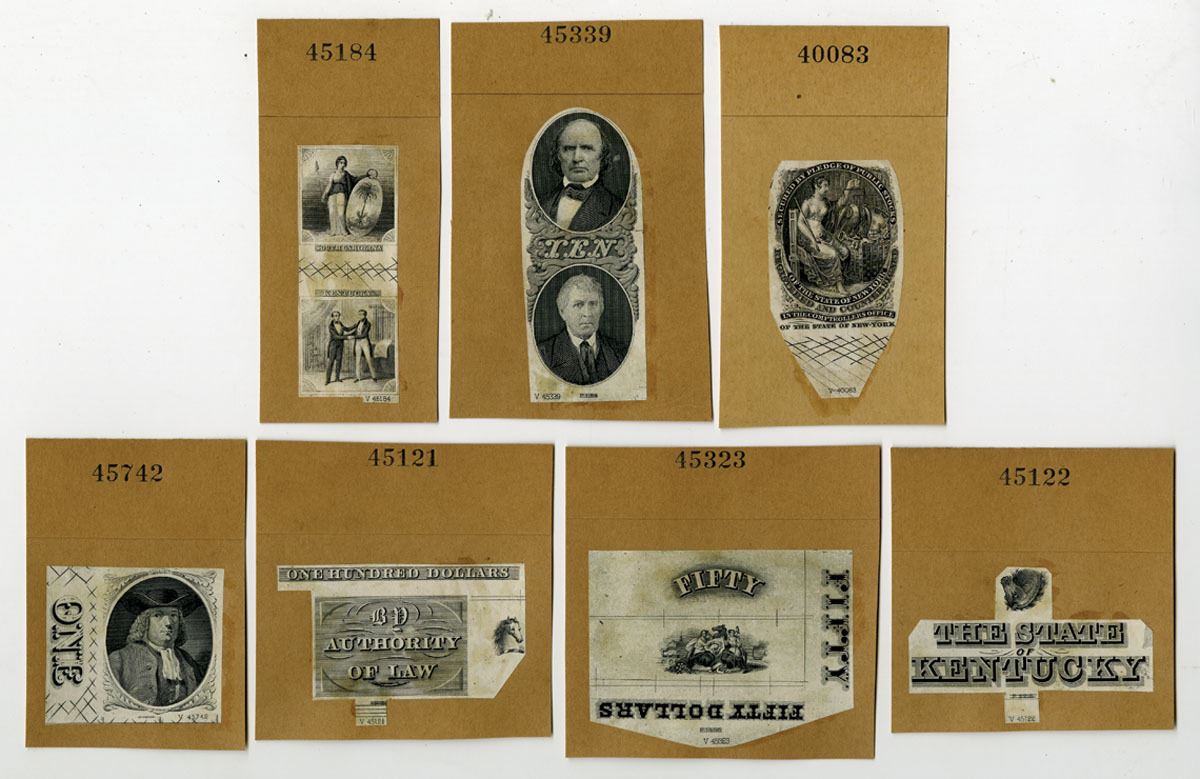 45184
SOUTH CAROLINA
KENTUCKY
V 45184
45339
TEN
V 45339
40083
SECURED BY PLEDGE OF PUBLIC STOCKS
OF THE STATE OF NEW YORK
AND
IN THE COMPTROLLERS OFFICE
OF THE STATE OF NEW-YORK
V-40083
45742
ONE
V 45742
45121
ONE HUNDRED DOLLARS
BY
AUTHORITY
OF LAW
V 45121
45323
FIFTY
FIFTY
FIFTY DOLLARS
V 45323
45122
THE STATE
OF
KENTUCKY
V 45122